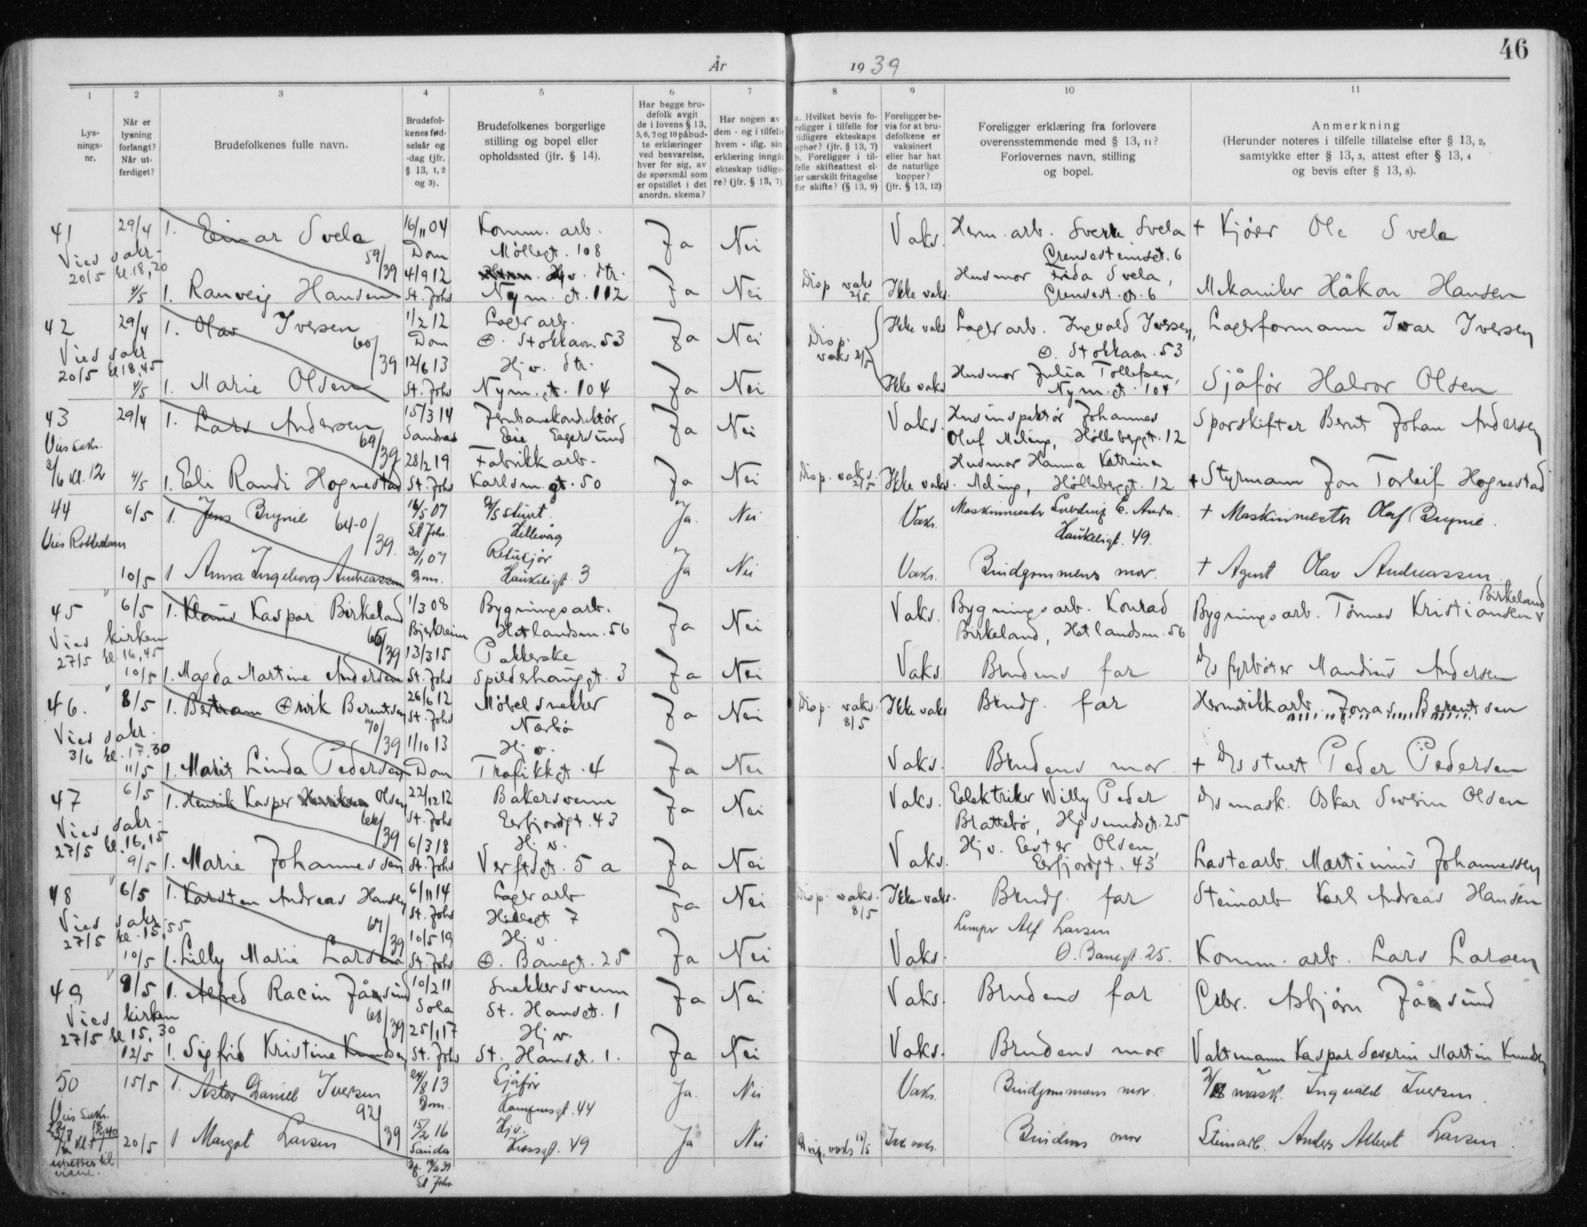 46
År 1939
1 2 3 4 5 6 7 8 9 10 11
Lys-
nings-
nr.
Når er
lysning
forlangt?
Når ut-
ferdiget?
Brudefolkenes fulle navn.
Brudefol-
kenes fød-
selsår og
-dag (jfr.
§ 13, 1, 2
og 3).
Brudefolkenes borgerlige
stilling og bopel eller
opholdssted (jfr. § 14).
Har begge bru-
defolk avgit
de i lovens § 13,
5, 6, 7 og 10 påbud-
te erklæringer
ved besvarelse,
hver for sig, av
de spørsmål som
er opstillet i det
anordn. skema?
Har nogen av
dem - og i tilfelle
hvem - iflg. sin
erklæring inngå
ekteskap tidlige-
re? (jfr. § 13, 7)
a. Hvilket bevis fo-
religger i tilfelle for
tidligere ekteskaps
ophør? (jfr. § 13, 7)
b. Foreligger i til-
felle skifteattest el-
ler særskilt fritagelse
for skifte? (§ 13, 9)
Foreligger be-
vis for at bru-
defolkene er
vaksinert
eller har hat
de naturlige
kopper?
(jfr. § 13, 12)
Foreligger erklæring fra forlovere
overensstemmende med § 13, 11?
Forlovernes navn, stilling
og bopel.
Anmerkning
(Herunder noteres i tilfelle tillatelse efter § 13, 2,
samtykke efter § 13, 3, attest efter § 13, 4
og bevis efter § 13, 8).
41 29/4 1. Einar Svela 16/11 04 Komm. arb. Ja Nei Vaks. Herm. arb. Sverre Svela + Kjører Ole Svela
Vies sakr. 59/39 Dom Møllegt. 108
20/5 kl. 18,20 4/9 12 Hj v. dtr. Husmor Frida Svela,
4/5 1. Ranveig Hansen St. Johs Nym. gt. 112 Ja Nei Disp vaks 2/5 Ikke vaks. 6 Mekaniker Håkon Hansen
42 29/4 1. Olav Iversen 1/2 12 Lager arb. Ja Nei Disp. vaks 2/5 Ikke vaks Lager arb. Ingvald Iversen, Lagerformann Ivar Iversen
Vies sakr. 60/39 Dom Ø. Stokkavn 53 Ø. Stokkavn. 53
20/5 kl 18,45 12/6 13 Hj v. dtr. Husmor Julia Tollefsen,
4/5 1. Marie Olsen St. Johs Nym. gt. 104 Ja Nei Ikke vaks Nym. gt. 104 Sjåfør Halvor Olsen
43 29/4 1. Lars Andersen 15/3 14 Jernbanekonduktør Ja Nei Vaks. Husinspektør Johannes Sporskifter Bernt Johan Andersen
Vies sakr. 69/39 Sandnes Eie, Egersund Oluf Meling, Hølleberggt. 12
3/6 kl. 12 28/2 19 Fabrikk arb. Husmor Hanna Katrine
4/5 1. Eli Randi Hognestad St. Johs Karlsm. gt. 50 Ja Nei Disp. vaks. 2/5 Ikke vaks. Meling, Hølleberggt. 12 + Styrmann Jon Torleif Hognestad
44 6/5 1. Jens Brynie 64-0/39. 16/5 07 D/S stuert. Ja. Nei Vaks. Maskinmester E. Andr. + Maskinmester Olaf Brynie.
Vies Rotterdam St Johs. Hillevåg Haukeligt. 49.
30/1 07
10/5 1 Anna Ingeborg Andreassen Dom. Haukeligt. 3 Ja Nei Vaks. Brudgommens mor. + Agent Olav Andreassen.
45 6/5 1. Klaus Kaspar Birkeland 1/3 08 Bygningsarb. Ja Nei Vaks. Bygningsarb. Konrad Bygningsarb. Tønnes Kristiansen Birkeland
Vies kirken 66/39 Bjerkreim Hetlandsm. 56 Birkeland, Hetlandsm. 56
27/5 kl. 16,45 13/3 15 Pakkerske
10/5 1. Magda Martine Andersen St. Johs Spilderhauggt. 3 Ja Nei Vaks. Brudens far D/S fyrbøter Mandius Andersen
46. 8/5 1. Bertram Ørvik Berentsen 26/6 12 Møbelsnekker Ja Nei Disp. vaks. 8/5 Ikke vaks Brudg. far Hermetikkarb. Jonas Berentsen
Vies sakr. 70/39 St. Johs Nærbø
3/6 kl. 17.30 1/10 13 Hj v.
11/5 1. Marit Linda Pedersen Dom Trafikkgt. 4 Ja Nei Vaks. Brudens mor + D/S stuert Peder Pedersen
47 6/5 1. Henrik Kasper Olsen 22/12 12 Bakersvenn Ja Nei Vaks. Elektriker Willy Peder D/S mask. Oskar Severin Olsen
Vies sakr. 66/39 St. Johs Eerfjordgt. 43 Brattebø, Høgsundgt. 25
27/5 kl. 16,15 6/3 18 Hj v. Hj v. Ester Olsen
9/5 1. Marie Johannessen St. Johs Verftsgt. 5 a Ja Nei Vaks. Eerfjordgt. 43 Lastearb. Martinius Johannessen
48 6/5 1. Karsten Andreas Hansen 6/11 14 Lager arb Ja Nei Disp. vaks. 8/5 Ikke vaks. Brudg. far Steinarb Karl Andreas Hansen
Vies sakr. 67/39 St. Johs Hillegt 7 Alf Larsen
27/5 kl. 15,55 10/5 19 Hj v.
10/5 1. Lilly Marie Larsen St. Johs Ø. Banegt. 25 Ja Nei Vaks. Ø. Banegt. 25. Komm. arb. Lars Larsen
49 8/5 1. Alfred Racin Jåsund 10/2 11 Snekkersvenn Ja Nei Vaks. Brudens far Gbr. Asbjørn Jåsund
Vies kirken 68/39 Sola St. Hansgt. 1
27/5 kl 15,30 25/1 17 Hj v.
12/5 1. Sigfrid Kristine Knudsen St. Johs St. Hansgt. 1. Ja Nei Vaks. Brudens mor Vaktmann Kaspar Severin Martin Knudsen
50 15/5 1. Astor Daniel Iversen 24/8 13 Sjåfør Ja. Nei Vaks. Brudgommens mor. D/S mask. Ingvald Iversen.
Vies Sakr. 92/39 Dom. Kampensgt. 44
15/2 16 Hj v.
20/5 1 Margot Larsen Sauda Ja Nei Ikke vaks. Brudens mor Steinarb. Anders Albert Larsen.
St Johs.